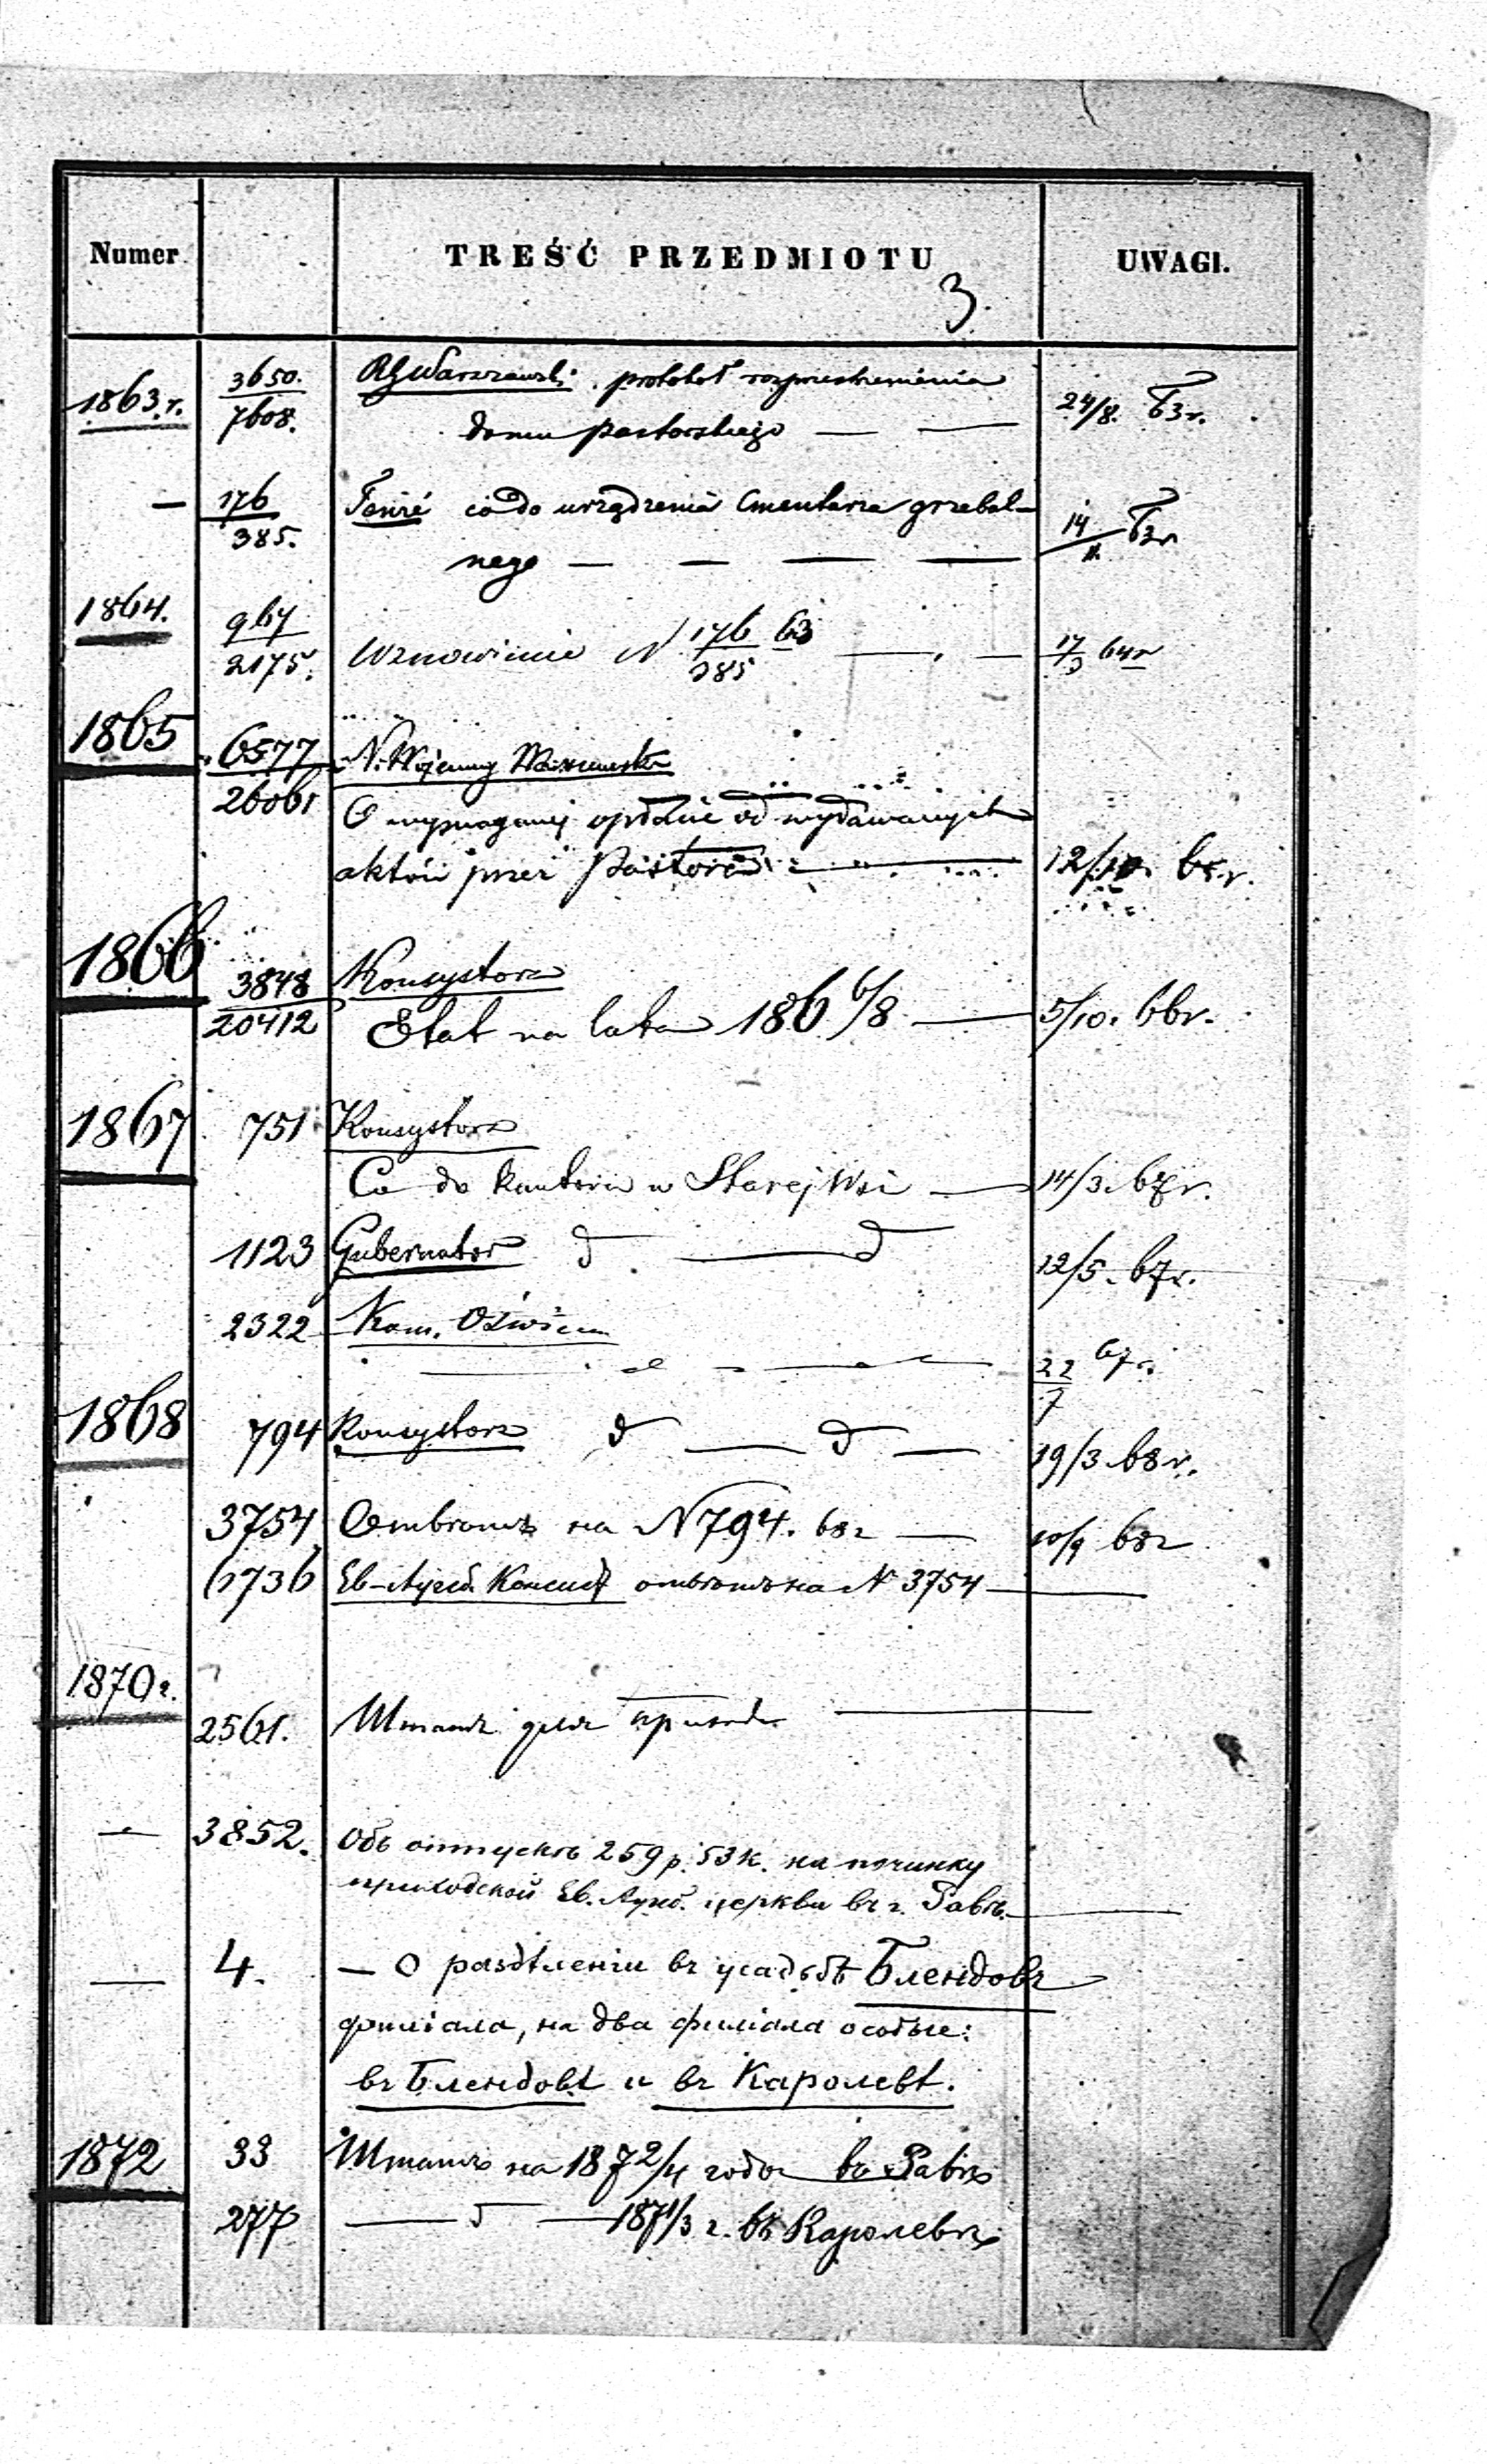 Numer TREŚĆ PRZEDMIOTU UWAGI.
3.
1863 r. 3650. RGWarszawski protokół rozprzestrzenienia 24/8. 63r.
7608. domu pastorskiego
— 176 Tenże co do urządzenia Cmentarza grzebal- 14/11. 63r
385. nego — — — —
1864. 967
2175. Wznowienie N 176/385 63 — 17/3 64r
1865 6577 N. Wojenny
26061 O wymaganej opłacie od wydawanych
aktów przez Pastora 12/10. 65r.
1866 3848 Konsystorz
20412 Etat na lata 186 6/8 — 5/10. 66r.
1867 751 Konsystorz
Co do kantora w Starej Wsi — 14/3. 67r.
1123 Gubernator d — d 12/5. 67r.
2322 Kom. Oświec
22/7 67r.
1868 794 Konsystorz d — d — 19/3. 68r.
3754 Ответъ на N 794. 68г — 10/9 68г
6736 Ев-Аугсб. Конс ответъ на N 3754 —
1870г.
2561. Штатъ для прихода —
— 3852. Объ отпускѣ 259 р. 53 к. на починку
приходской Ев. Аугсб. церкви въ г. Равѣ. —
— 4. — О раздѣленіи въ усадьбѣ Блендовъ
филіала, на два филіала особые:
въ Блендовѣ и въ Каролевѣ.
1872 33 Штатъ на 187 2/4 года въ Равѣ
277 — d — 187 1/3 г. въ Каролевѣ